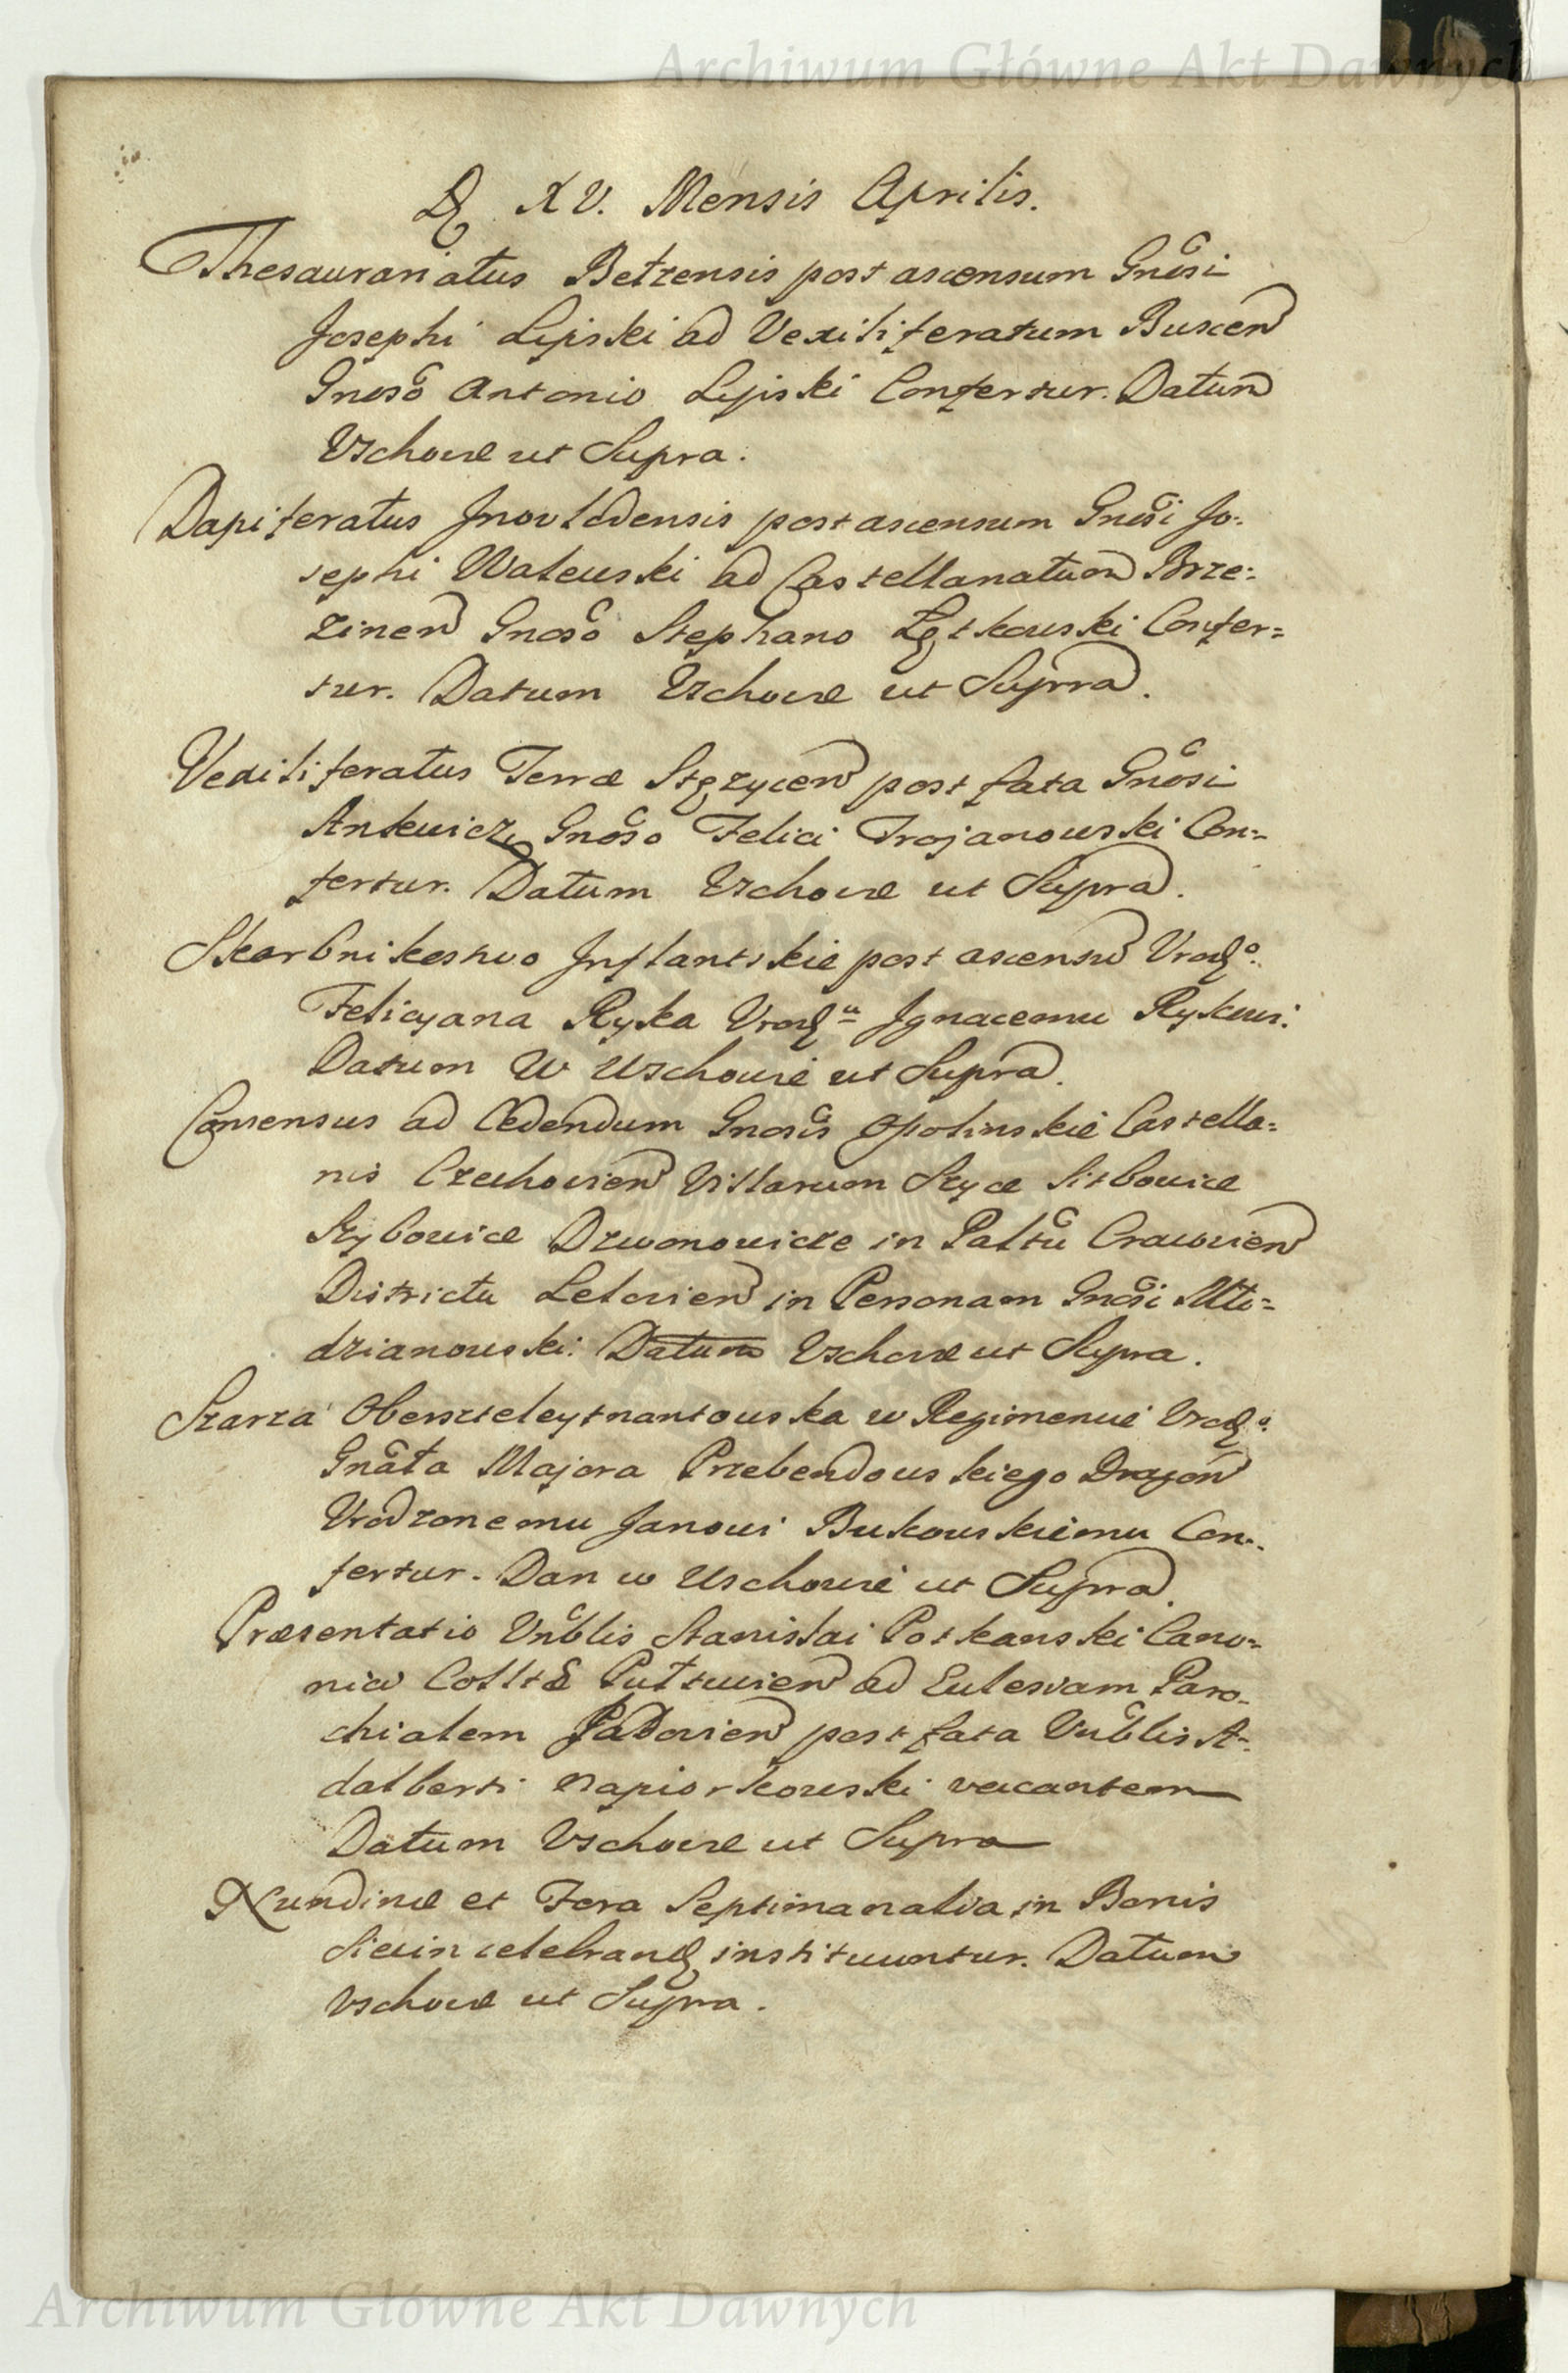 Archiwum Główne Akt Dawnych
D XV. Mensis Aprilis.
Thesaurariatus Betzensis post ascensum Gnosi
Josephi Lipski ad Vexilliferatum Buscen
Gnoso Antonio Lipski Confertur. Datum
Vschovæ ut Supra.
Dapiferatus Jnovladensis post ascensum Gnosi Jo:
sephi Walewski ad Castellanatum Brze:
zinen Gnoso Stephano Łętkowski Confer=
tur. Datum Vschovæ ut Supra.
Vexiliferatus Terræ Stęzycen post fata Gnosi
Ankwicz Gnoso Felici Trojanowski Con=
fertur. Datum Vschovæ ut Supra.
Skarbnikostwo Jnflantskie post ascensu Vrodzo.
Felicyana Ryka Vrodzu Jgnacemu Rykowi.
Datum W Wschowie ut Supra.
Consensus ad Cedendum Gnosis Opolinskie Castella=
nis Czechovien Villarum Szyce
Szybowice Dzwonowicze in Palttu Cracovien
Districtu Lelovien in Personam Gnosi Mło=
dzianowski. Datum Vschovæ ut Supra.
Szarza Oberszteleytnantowska w Regimencie Vrodzo.
Gnała Majora Przebendowskiego Dragon
Vrodzonemu Janowi Bukowskiemu Con=
fertur. Dan w Wschowie ut Supra.
Præsentatio Vnblis Stanislai Potkanski Cano=
nici Colltæ Pultovien ad Eclesiam Paro=
chialem post fata Vnblis A=
dalberti Napiorkowski vacantem
Datum Vschovæ ut Supra
Nundinæ et Fora Septimanalia in Bonis
Siecin celebrand instituuntur. Datum
Vschovæ ut Supra.
Archiwum Główne Akt Dawnych